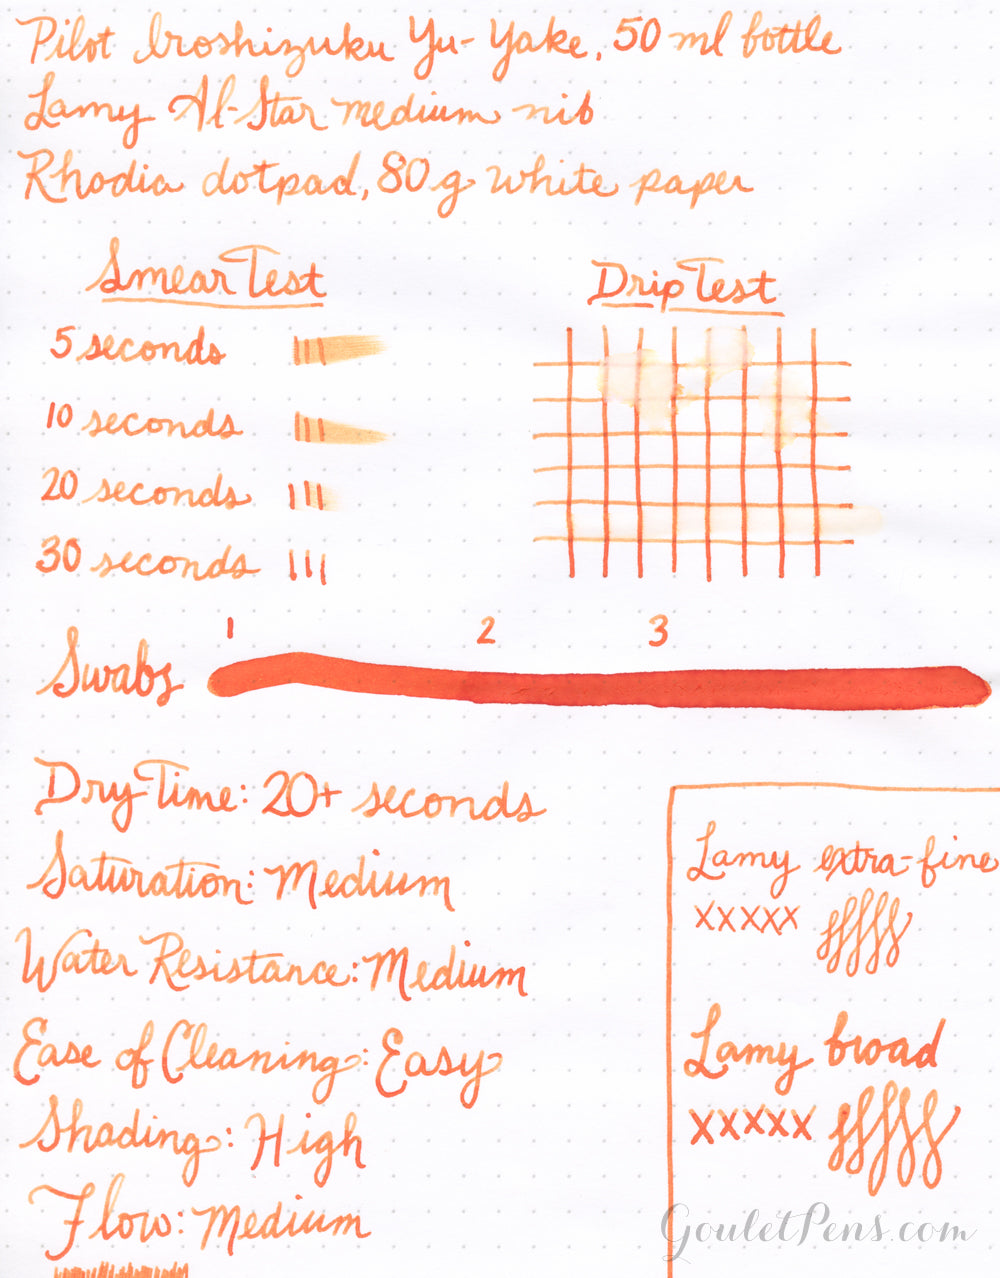 Pilot Iroshizuku Yu-Yake, 50 ml bottle
Lamy Al-Star medium nib
Rhodia dotpad, 80 g white paper
Smear Test
5 seconds
10 seconds
20 seconds
30 seconds
Drip Test
1 2 3
Swabs
Dry Time: 20+ seconds
Saturation: Medium
Water Resistance: Medium
Ease of Cleaning: Easy
Shading: High
Flow: Medium
Lamy extra-fine
xxxxx
Lamy broad
xxxxx
GouletPens.com